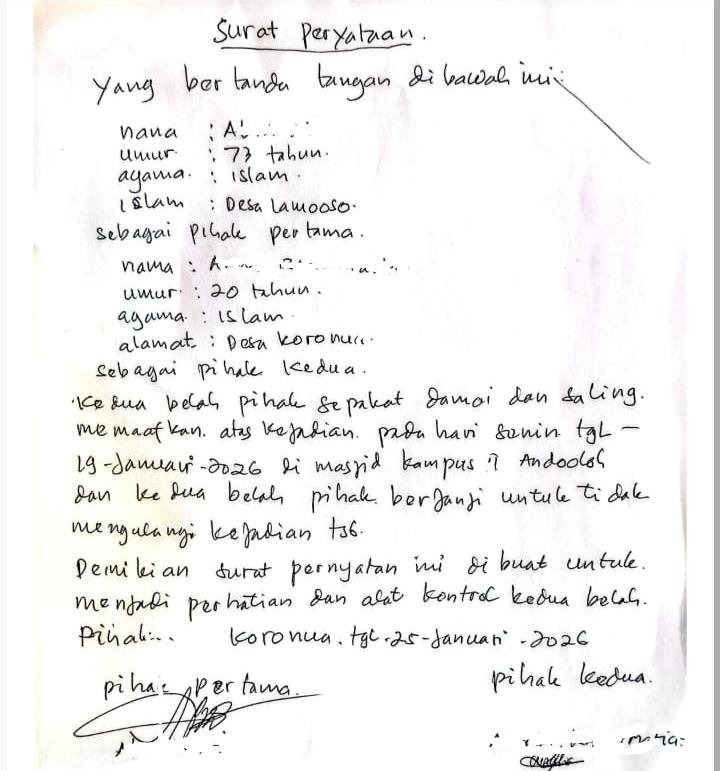 Surat peryataan.
yang ber tanda tangan di bawah ini:
nana : A
umur : 73 tahun.
agama. : islam.
islam : Desa Lamooso.
sebagai pihak per tama.
nama :
umur : 20 tahun.
agama : islam
alamat : Desa koronua.
sebagai pihak kedua.
Kedua belah pihak sepakat damai dan saling.
memaafkan. atas kejadian. pada hari senin tgl -
19-Januari-2026 di masjid kampus Andoolo
dan ke dua belah pihak berjanji untuk tidak
mengulangi kejadian tsb.
Demikian surat pernyatan ini di buat untuk.
menjadi perhatian dan alat kontrol kedua belah.
Pihak... koronua. tgl.25-Januari-2026
pihak per tama.
pihak kedua.